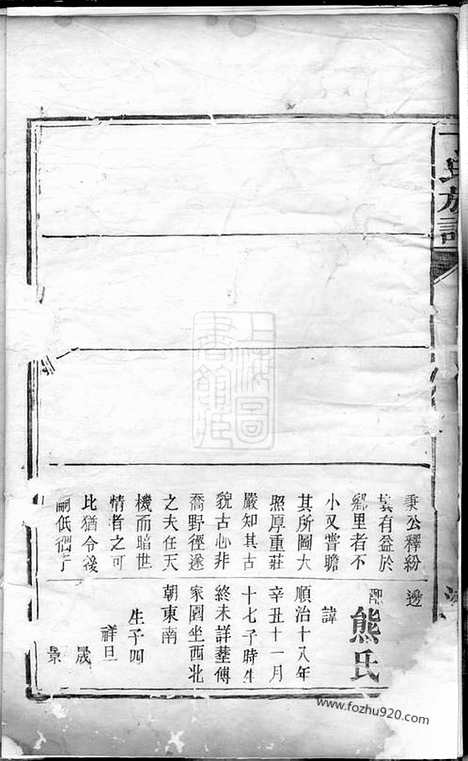 氏族譜
秉公釋紛
有益於
鄉里者不
小又嘗瞻
其所圖大
照厚重莊
嚴知其古
貌古心非
喬野徑遂
之夫任天
機而暗世
情者之可
比猶令後
嗣低徊于
邊
熊氏
諱
順治十八年
辛丑十一月
十七子時生
終未詳塟傅
家園坐西北
朝東南
生子四
祥旦
晟
景
上海圖
書館藏
www.fozhu920.com